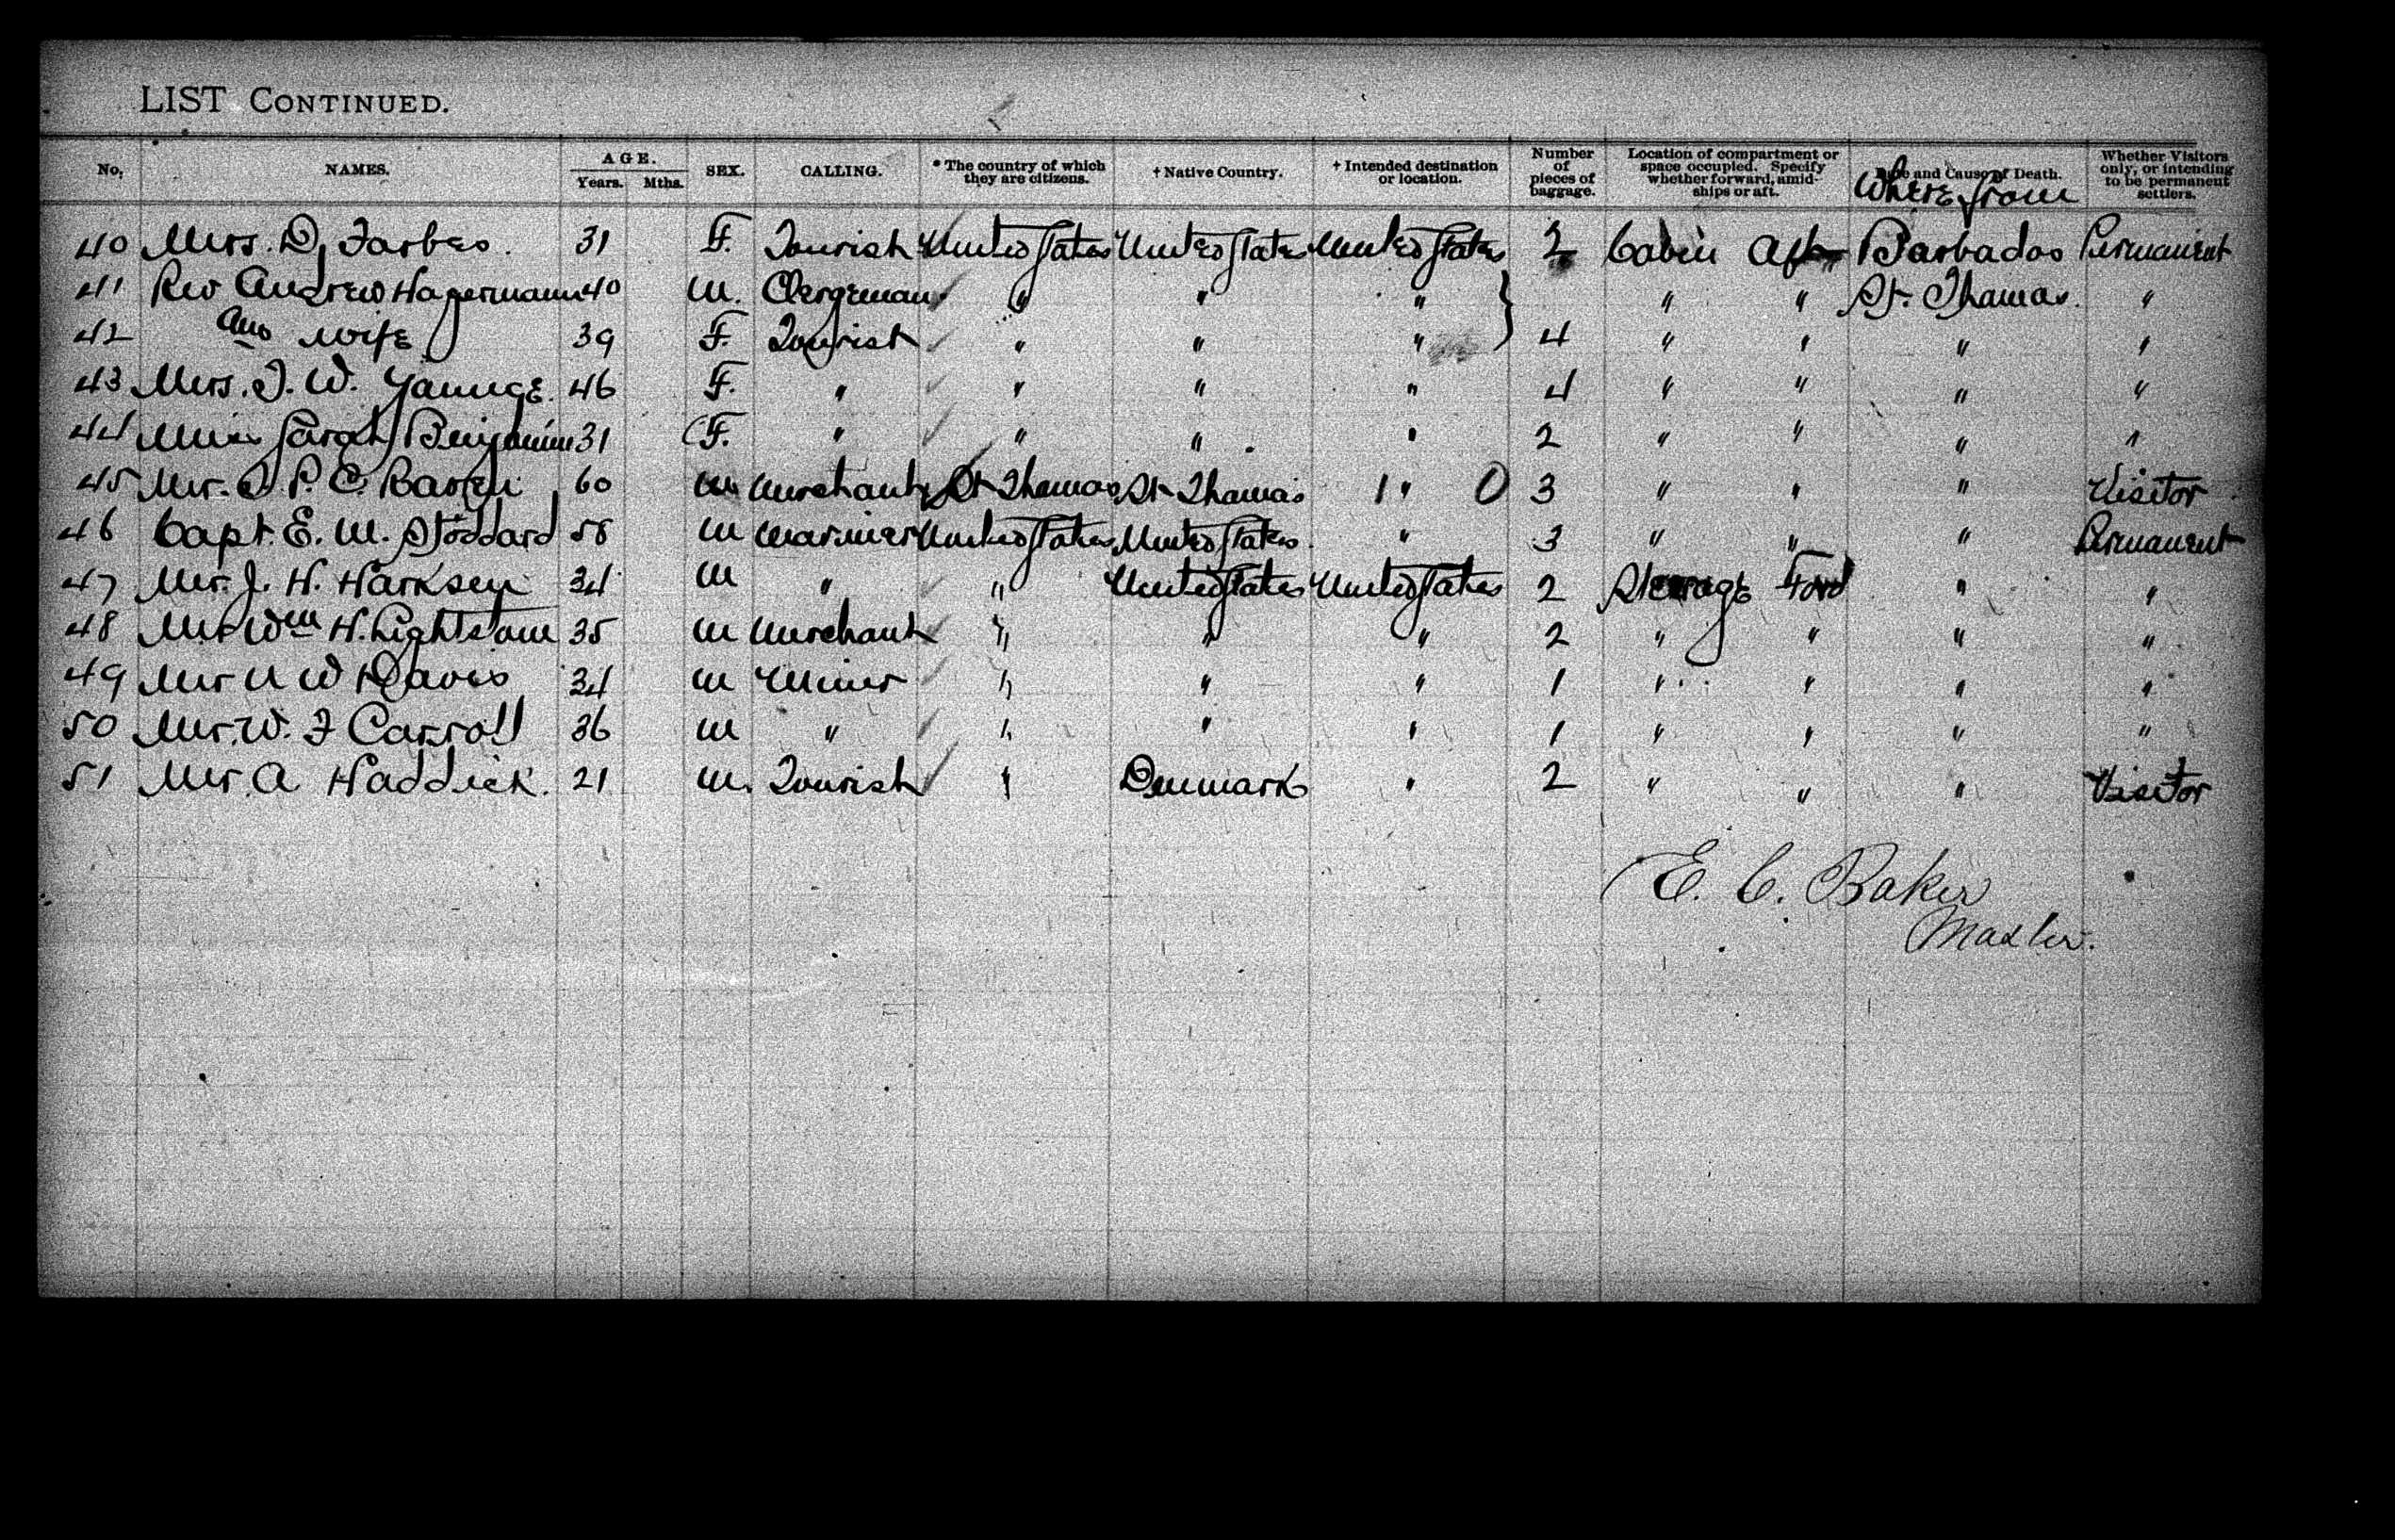 LIST CONTINUED.
No. NAMES. AGE. Years. Mths. SEX. CALLING. * The country of which they are citizens. † Native Country. † Intended destination or location. Number of pieces of baggage. Location of compartment or space occupied. Specify whether forward, amidships or aft. Date and Cause of Death. Where from Whether Visitors only, or intending to be permanent settlers.
40 Mrs. D. Forbes. 31 F. Tourist United States United States United States 2 Cabin Aft Barbados Permanent
41 Rev Andrew Hagermann 40 M. Clergeman " " " } " " St. Thomas. "
42 and wife 39 F. Tourist " " " 4 " " " "
43 Mrs. J. W. 46 F. " " " " 4 " " " "
44 Miss Sarah Benjamin 31 F. " " " " 2 " " " "
45 Mr. P. C. 60 M. Merchant St Thomas St Thomas 1 " 0 3 " " " Visitor
46 Capt. E. W. Stoddard 58 M Mariner United States United States " 3 " " " Permanent
47 Mr. J. H. Harksen 34 M " " United States United States 2 Steerage Ford " "
48 Mr Wm H. Lightsom 35 M Merchant " " " 2 " " " "
49 Mr W Davis 34 M Miner " " " 1 " " " "
50 Mr. W. F Carroll 36 M " " " " 1 " " " "
51 Mr. A Haddick. 21 M. Tourist " Denmark " 2 " " " Visitor
E. C. Baker
Master.